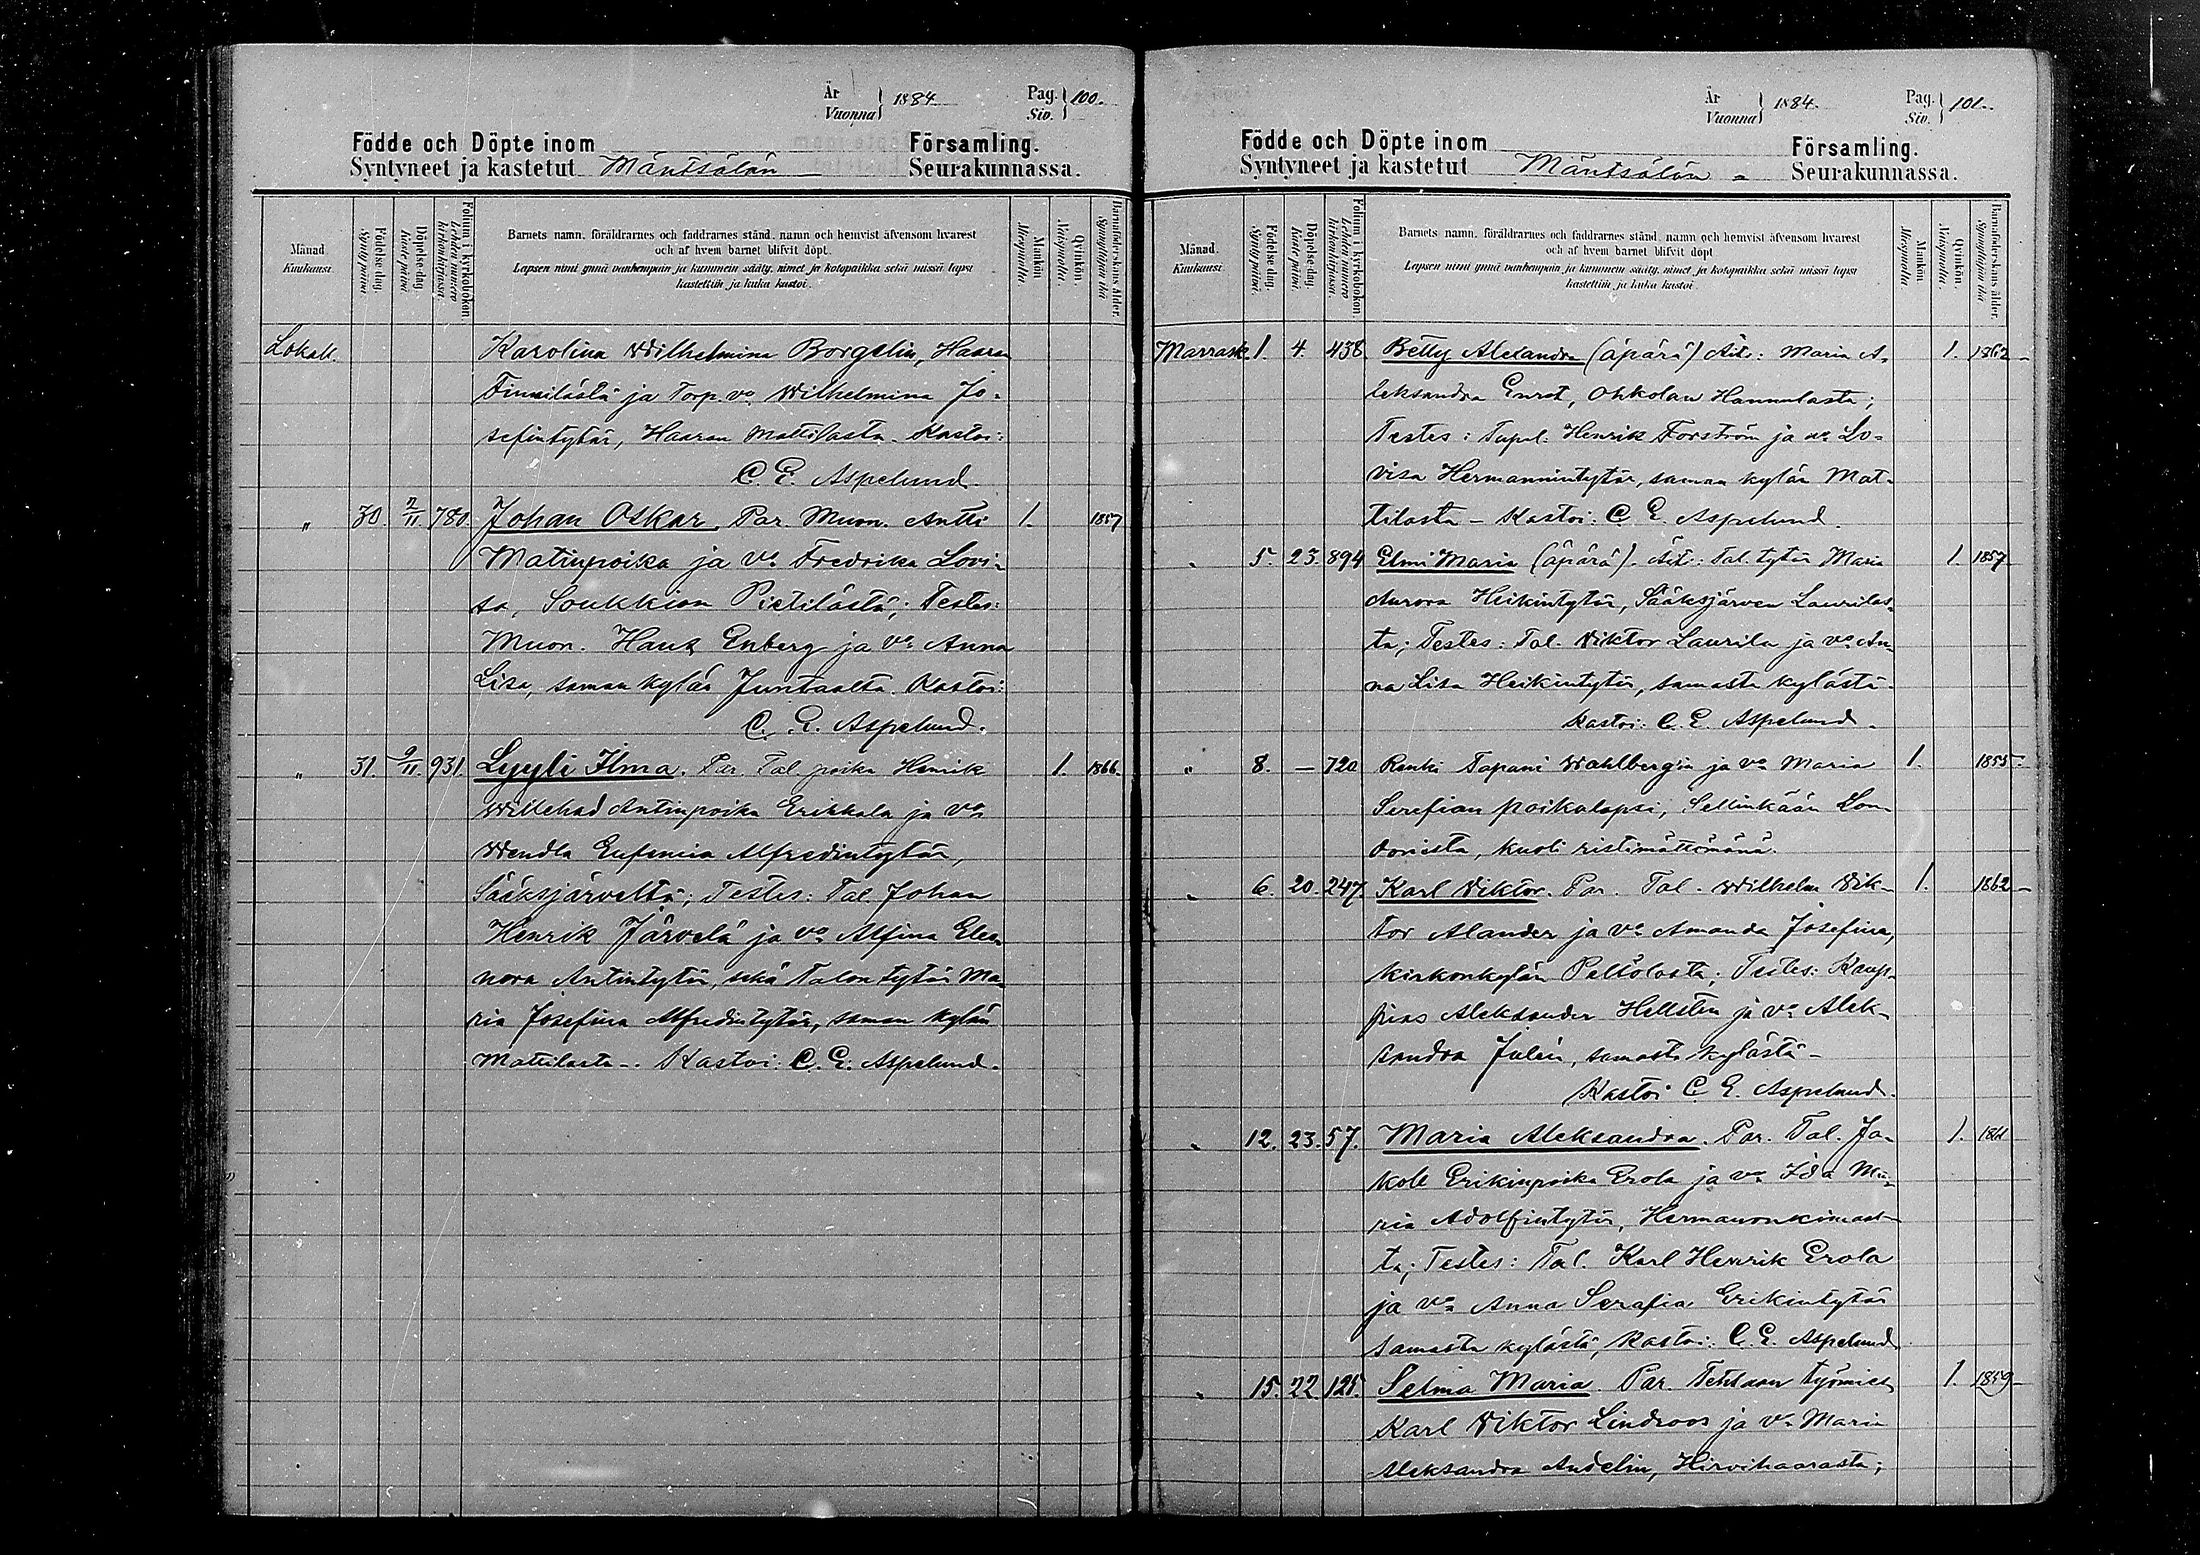 År
Vuonna } 1884
Pag.
Siv. } 100.
Födde och Döpte inom Församling.
Syntyneet ja kastetut Mäntsälän Seurakunnassa.
Månad.
Kuukausi.
Födelse dag.
Syntypäivä.
Döpelse-dag.
Kaste päivä.
Folium i kyrkobokon.
Lehden numero kirkonkirjassa.
Barnets namn, föräldrarnes och faddrarnes stånd, namn och hemvist äfvensom hvarest
och af hvem barnet blifvit döpt.
Lapsen nimi ynnä vanhempain ja kummein sääty, nimet ja kotopaikka sekä missä lapsi
kastettiin ja kuka kastoi.
Mankön.
Miespuolta.
Qvinkön.
Naispuolta.
Barnaföderskans ålder.
Synnyttäjän ikä.
Lokak. Karolina Wilhelmina Borgelin, Haaran
Finnilästä ja Torp. vo Wilhelmina Jo-
sefintytär, Haaran Mattilasta. Kastoi:
C. E. Aspelund.
" 30. 2/11 780. Johan Oskar. Par. Muon. Antti 1. 1857
Matinpoika ja vo Fredrika Lovi-
sa, Soukkion Pietilästä; Testes:
Muon. Hans Enberg ja vo Anna
Lisa, saman kylän Juntaalta. Kastoi:
C. E. Aspelund.
" 31. 9/11 931. Lyyli Ilma. Par. Tal. poika Henrik 1. 1866
Willehad Antinpoika Erikkala ja vo
Wendla Eufemia Alfredintytär,
Sääksjärveltä; Testes: Tal. Johan
Henrik Järvelä ja vo Alfina Eleo-
nora Antintytär, sekä Talon tytär Ma-
ria Josefina Alfredintytär, saman kylän
Mattilasta -. Kastoi: C. E. Aspelund.
År
Vuonna } 1884.
Pag.
Siv. } 101.
Födde och Döpte inom Församling.
Syntyneet ja kastetut Mäntsälän Seurakunnassa.
Månad.
Kuukausi.
Födelse dag.
Syntypäivä.
Döpelse-dag.
Kaste päivä.
Folium i kyrkobokon.
Lehden numero kirkonkirjassa.
Barnets namn, föräldrarnes och faddrarnes stånd, namn och hemvist äfvensom hvarest
och af hvem barnet blifvit döpt
Lapsen nimi ynnä vanhempain ja kummein sääty, nimet ja kotopaikka sekä missä lapsi
kastettiin ja kuka kastoi.
Mankön.
Miespuolta.
Qvinkön.
Naispuolta.
Barnaföderskans ålder.
Synnyttäjän ikä.
Marrask. 1. 4. 438 Betty Alexandra (äpärä) Äiti: Maria A- 1. 1862
leksandra Enret, Ohkolan Hannulasta;
Testes: Henrik Forström ja vo Lo-
visa Hermannintytär, saman kylän Mat-
tilasta - Kastoi: C. E. Aspelund.
" 5. 23. 894 Elmi Maria (äpärä). Äiti: Tal. tytär Maria 1. 1857
Aurora Heikintytär, Sääksjärven Laurilas-
ta; Testes: Tal. Viktor Laurila ja vo An-
na Lisa Heikintytär, samasta kylästä.
Kastoi: C. E. Aspelund.
" 8. — 720 Renki Tapani Wahlbergin ja vo Maria 1. 1855
Serefian poikalapsi, Sellinkään Lon-
doonista, kuoli ristimättömänä.
" 6. 20. 247. Karl Viktor. Par. Tal. Wilhelm Vik- 1. 1862
tor Alander ja vo Amanda Josefina,
kirkonkylän Peltolasta; Testes: Kaup-
pias Aleksander Hellsten ja vo Alek-
sandra Julin, samasta kylästä -
Kastoi C. E. Aspelund.
" 12. 23. 57. Maria Aleksandra. Par. Tal. Ja- 1.
kob Erikinpoika Erola ja vo Ida Ma-
ria Adolfintytär,
ta; Testes: Tal. Karl Henrik Erola
ja vo Anna Serafia Erikintytär
samasta kylästä, Kastoi: C. E. Aspelund
" 15. 22 Selma Maria. Par. Tehtaan työmies 1. 1859
Karl Viktor Lindroos ja vo Maria
Aleksandra Andelin, Hirvihaarasta;